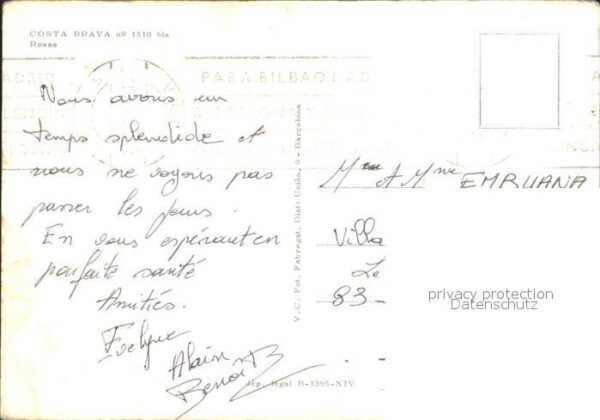 COSTA BRAVA nº 1510 bis
Rosas
PARA BILBAO
Nous avons un
temps splendide et
nous ne voyons pas
passer les jours.
En vous espérant en
parfaite santé
Amitiés.
Evelyne
Alain
Benoit
V. C. Fot. Fabregat, Dist: Unión, 9 - Barcelona
dép. legal B-1395-XIV
Mr et Mme EMRUANA
Villa
Le
83
privacy protection
Datenschutz